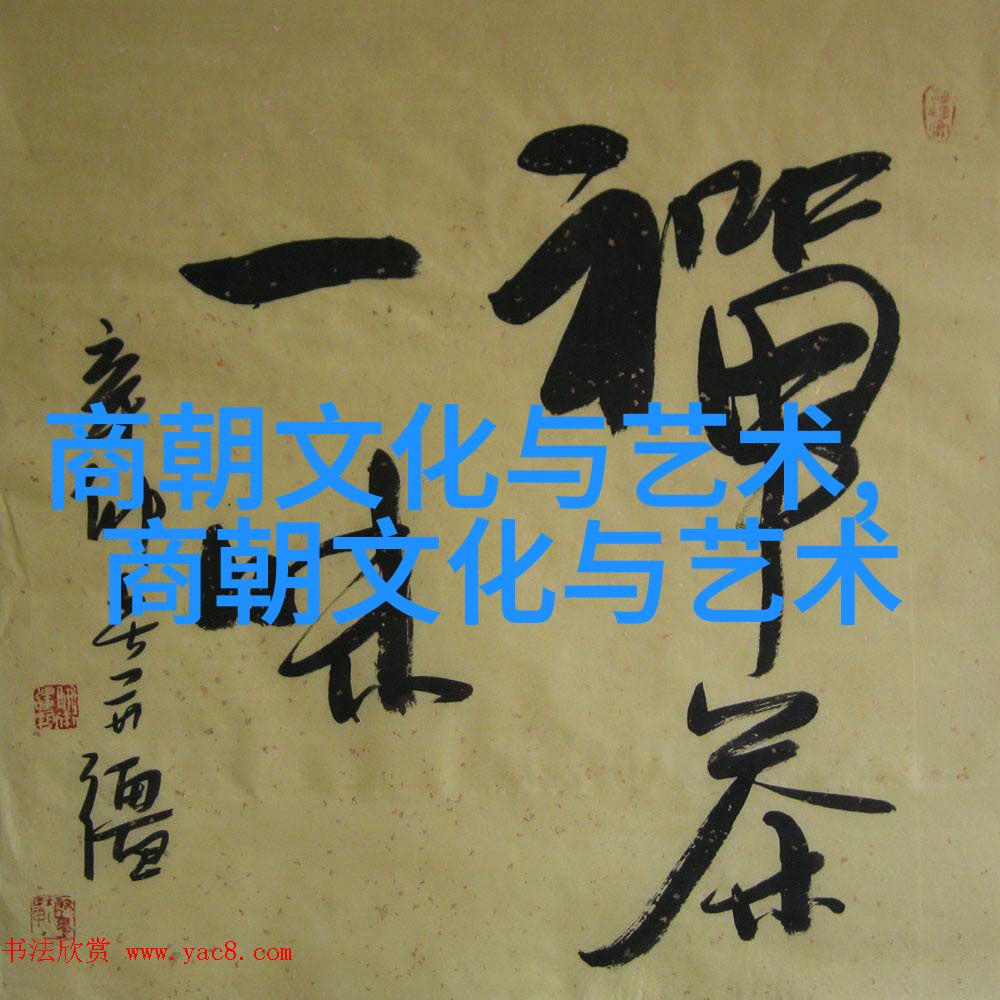 禪茶
一味
商朝文化与艺术,
商朝文化与艺术
书法欣赏 www.yac8.com